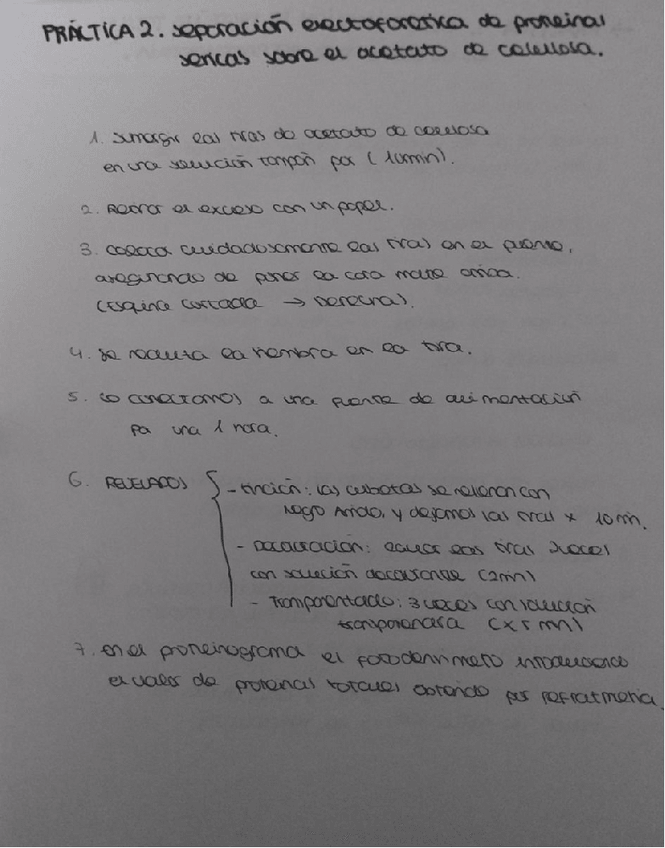 PRÁCTICA 2. separación electoforetica de proteinas
sericas sobre el acetato de celulosa.
1. Sumergir las tiras de acetato de celulosa
en una solución tampón por (10min).
2. Retirar el exceso con un papel.
3. coloca cuidadosamente las tiras en el puente,
asegurando de poner la cara mate arriba.
(Esquina cortada → Derecha).
4. se realiza la siembra en la tira.
5. lo conectamos a una fuente de alimentación
por una 1 hora.
6. REVELADOS - tinción: las cubetas se rellenan con
Negro Amido, y dejamos las tiras x 10min.
- Decoloración: lavar las tiras 3 veces
con solución decolorante (2min)
- Transparentado: 3 veces con solución
transparentara (x 5 min)
7. en el proteinograma el fotodensimetro introduciendo
el valor de proteinas totales obtenido por refractmetria.